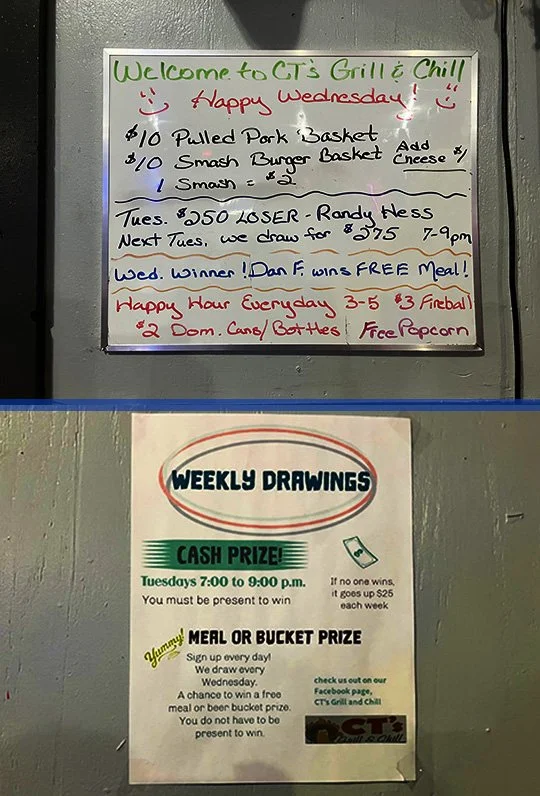 Welcome to CT's Grill & Chill
Happy Wednesday!
$10 Pulled Pork Basket
$10 Smash Burger Basket Add Cheese $1
1 Smash = $2
Tues. $250 LOSER - Randy Hess
Next Tues, we draw for $275 7-9pm
Wed. Winner! Dan F. wins FREE Meal!
Happy Hour Everyday 3-5 $3 Fireball
$2 Dom. Cans/Bottles Free Popcorn
WEEKLY DRAWINGS
CASH PRIZE!
Tuesdays 7:00 to 9:00 p.m.
You must be present to win
$
If no one wins,
it goes up $25
each week
Yummy! MEAL OR BUCKET PRIZE
Sign up every day!
We draw every
Wednesday.
A chance to win a free
meal or beer bucket prize.
You do not have to be
present to win.
check us out on our
Facebook page,
CT's Grill and Chill
CT's
Grill & Chill